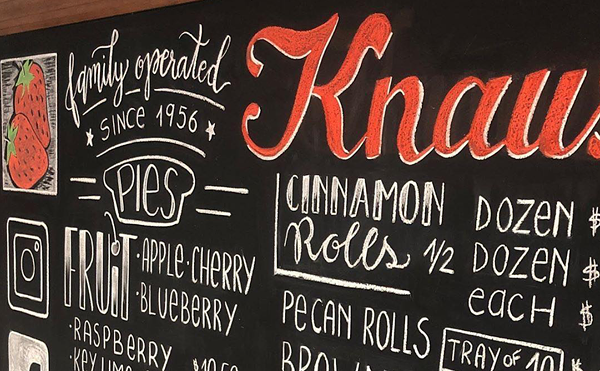 family operated
SINCE 1956
Knaus
PIES
FRUIT
·APPLE·CHERRY
·BLUEBERRY
·RASPBERRY
CINNAMON
Rolls
DOZEN $
1/2 DOZEN $
each $
PECAN ROLLS
TRAY OF 10 $